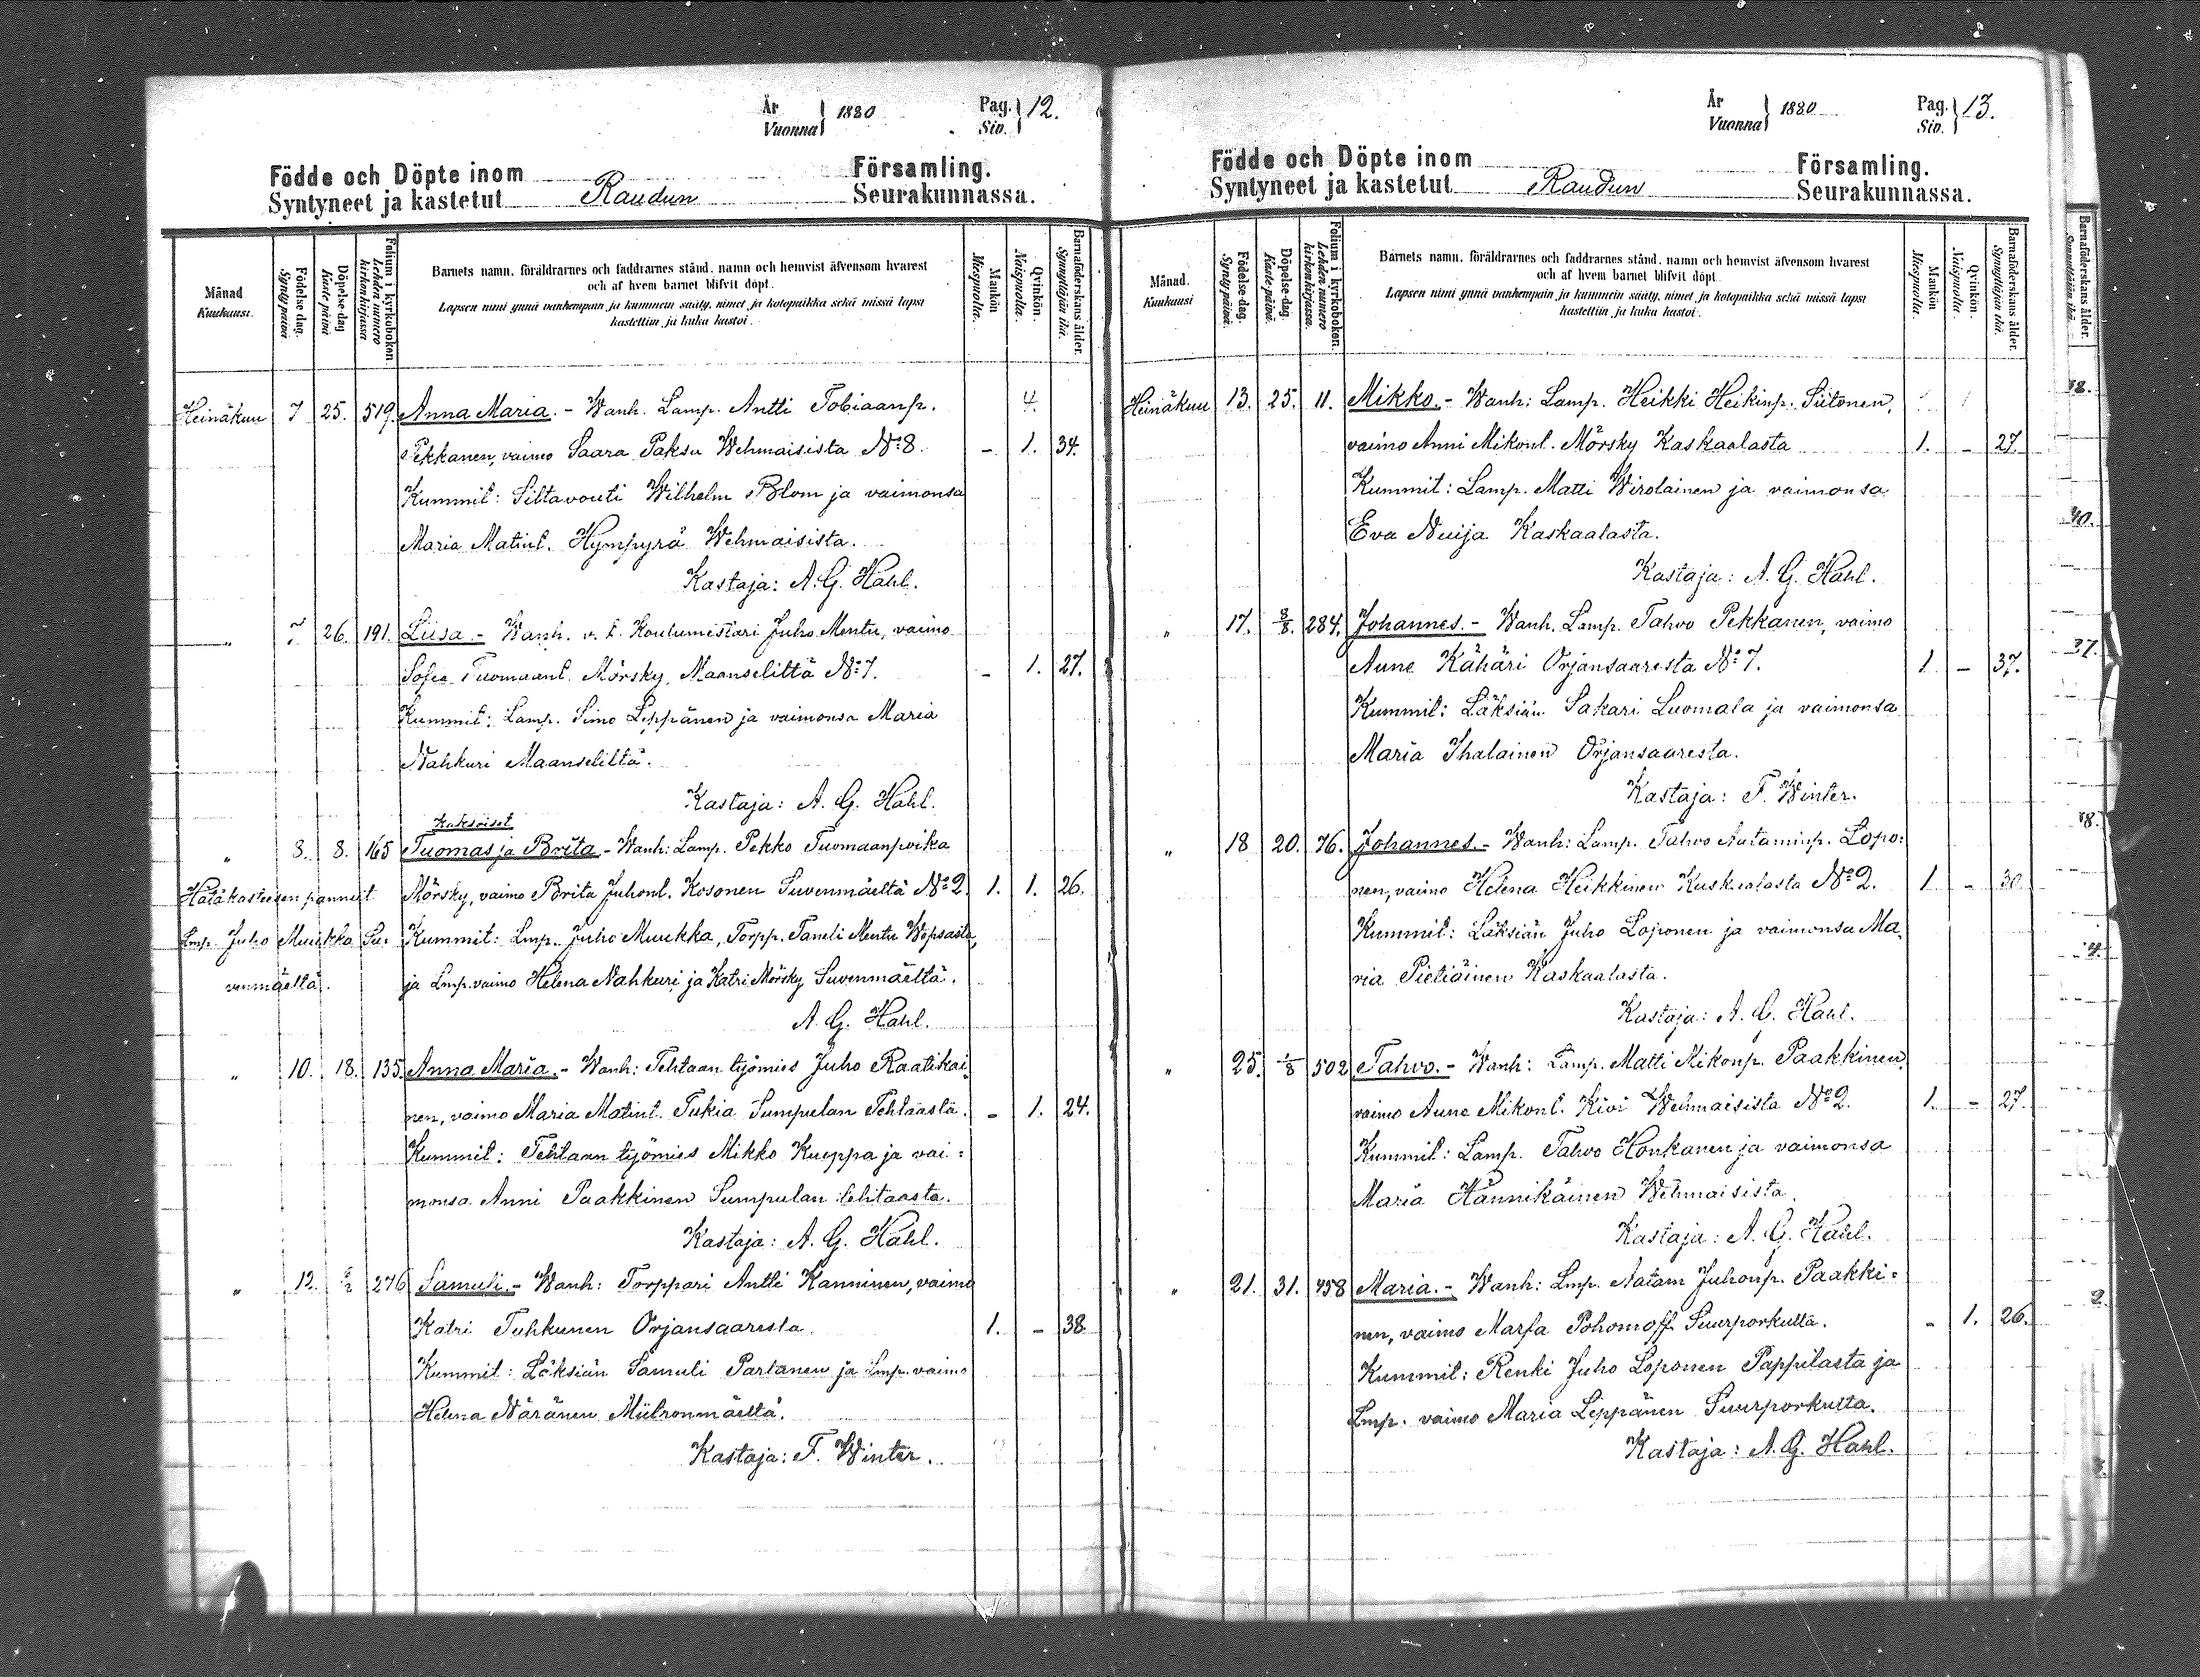 År
Vuonna } 1880
Pag.
Siv. } 12.
Födde och Döpte inom Församling.
Syntyneet ja kastetut Raudun Seurakunnassa.
Månad
Kuukausi.
Födelse dag.
Syntypäivä
Döpelse-dag
Kaste-päivä
Folium i kyrkoboken
Lehden numero
kirkonkirjassa
Barnets namn, föräldrarnes och faddrarnes stånd, namn och hemvist äfvensom hvarest
och af hvem barnet blifvit döpt.
Lapsen nimi ynnä vanhempain ja kummein sääty, nimet ja kotopaikka sekä missä lapsi
kastettiin ja kuka kastoi.
Mankön
Miespuolia.
Qvinkön
Naispuolia.
Barnaföderskans ålder.
Synnyttäjän ikä.
Heinäkuu 7 25. 519. Anna Maria. - Wanh. Lamp. Antti Tobiaanp. 4.
Pekkanen, vaimo Saara Paksu Wehmaisista No 8. - 1. 34.
Kummit: Siltavouti Wilhelm Blom ja vaimonsa
Maria Matint. Hympyrä Wehmaisista.
Kastaja: A. G. Hahl.
" 7. 26. 191. Liisa. - Wanh. v. t. Koulumestari Juho Mentu, vaimo
Sofia Tuomaant. Mörsky, Maanseliltä No 7. - 1. 27.
Kummit: Lamp. Simo Leppänen ja vaimonsa Maria
Nahkuri Maanseliltä.
Kastaja: A. G. Hahl.
Kaksoiset
" 8. 8. 165 Tuomas ja Brita. - Wanh: Lamp. Pekko Tuomaanpoika
Hätäkasteesen pannut Mörsky, vaimo Brita Juhont. Kosonen Suvenmäeltä No 2. 1. 1. 26.
Lmp. Juho Muukka Su- Kummit: Lmp. Juho Muukka, Torpp. Taneli Mentu Wepsästä,
venmäeltä. ja Lmp. vaimo Helena Nahkuri ja Katri Mörsky Suvenmäeltä.
A. G. Hahl.
" 10. 18. 135. Anna Maria. - Wanh: Tehtaan työmies Juho Raatikai-
nen, vaimo Maria Matint. Tukia Sumpulan Tehtaasta. - 1. 24.
Kummit: Tehtaan työmies Mikko Kueppa ja vai=
monsa Anni Paakkinen Sumpulan tehtaasta.
Kastaja: A. G. Hahl.
" 12. 276 Samuli. - Wanh: Torppari Antti Kanninen, vaimo
Katri Tuhkunen Orjansaaresta. 1. - 38.
Kummit: Läksiän Samuli Partanen ja Lmp. vaimo
Helena Näränen Miilronmäeltä.
Kastaja: F. Winter.
År
Vuonna } 1880
Pag.
Siv. } 13.
Födde och Döpte inom Församling.
Syntyneet ja kastetut Raudun Seurakunnassa.
Månad.
Kuukausi
Födelse-dag.
Syntypäivä.
Döpelse-dag.
Kaste-päivä.
Folium i kyrkoboken.
Lehden numero
kirkonkirjassa.
Barnets namn, föräldrarnes och faddrarnes stånd, namn och hemvist äfvensom hvarest
och af hvem barnet blifvit döpt.
Lapsen nimi ynnä vanhempain ja kummein sääty, nimet ja kotopaikka sekä missä lapsi
kastettiin ja kuka kastoi.
Mankön
Miespuolia.
Qvinkön.
Naispuolia.
Barnaföderskans ålder.
Synnyttäjän ikä.
Heinäkuu 13. 25. 11. Mikko. - Wanh: Lamp. Heikki Heikinp. Siitonen,
vaimo Anni Mikont. Mörsky Kaskaalasta 1. - 27.
Kummit: Lamp. Matti Wirolainen ja vaimonsa
Eva Nuija Kaskaalasta.
Kastaja: A. G. Hahl.
" 17. 8/8. 284. Johannes. - Wanh. Lamp. Tahvo Pekkanen, vaimo
Aune Kähäri Orjansaaresta No 7. 1. - 37.
Kummit: Läksiän Sakari Luomala ja vaimonsa
Maria Ihalainen Orjansaaresta.
Kastaja: F. Winter.
" 18 20. 76. Johannes. - Wanh: Lamp. Tahvo Aataminp. Lopo:
nen, vaimo Helena Heikkinen Kaskaalasta No 2. 1 - 30
Kummit: Läksiän Juho Loponen ja vaimonsa Ma-
ria Pietiäinen Kaskaalasta.
Kastaja: A. G. Hahl.
" 25. 1/8 502 Tahvo. - Wanh: Lamp. Matti Mikonp. Paakkinen,
vaimo Aune Mikont. Kivi Wehmaisista No 2. 1. - 27.
Kummit: Lamp. Tahvo Honkanen ja vaimonsa
Maria Hännikäinen Wehmaisista.
Kastaja: A. G. Hahl.
" 21. 31. 458 Maria. - Wanh: Lmp. Aatam Juhonp. Paakki=
nen, vaimo Marfa Pohomoff Suurporkulta. - 1. 26.
Kummit: Renki Juho Loponen Pappilasta ja
Lmp. vaimo Maria Leppänen Suurporkulta.
Kastaja: A. G. Hahl.
Barnaföderskans ålder.
Synnyttäjän ikä.
40.
37.